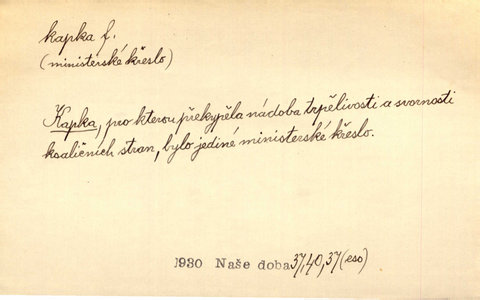 kapka f.
(ministerské křeslo)
Kapka, pro kterou překypěla nádoba trpělivosti a svornosti
koaličních stran, bylo jediné ministerské křeslo.
1930 Naše doba 37,40,37 (eso)